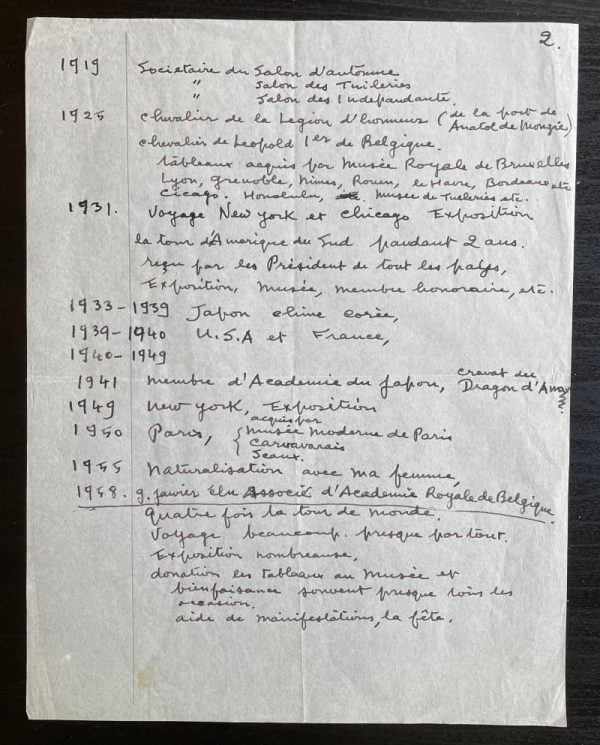 2.
1919 Societaire du Salon d'automne
" Salon des Tuileries
" Salon des Indepandants.
1925 chevalier de la Legion d'honneur (de la part de
Anatol de Monzie)
chevalier de Leopold 1er de Belgique.
tableaux acquis par Musée Royale de Bruxelles
Lyon, Grenoble, Nimes, Rouen, le Havre, Bordeaux etc
Cicago. Honolulu, Musée de Tueleries etc.
1931. Voyage New york et chicago Exposition
la tour d'Amerique du Sud pandant 2 ans.
reçu par les Président de tout les payes,
Exposition, Musée, membre honoraire, etc.
1933-1939 Japon chine corée,
1939-1940 U.S.A et France,
1940-1949
1941 membre d'Academie du Japon, cravat du
Dragon d'
1949 New york, Exposition
acquis par
1950 Paris, { Musée Moderne de Paris
Carnavarais
Seaux.
1955 Naturalisation avec ma femme,
1958. 9. javier Elu Associé d'Academie Royale de Belgique.
quatre fois la tour de monde.
Voyage beaucoup. presque partout.
Exposition nombreause,
donation les tableaux au Musée et
bienfaisance souvent presque tous les
occasion.
aide de manifestations, la fête.